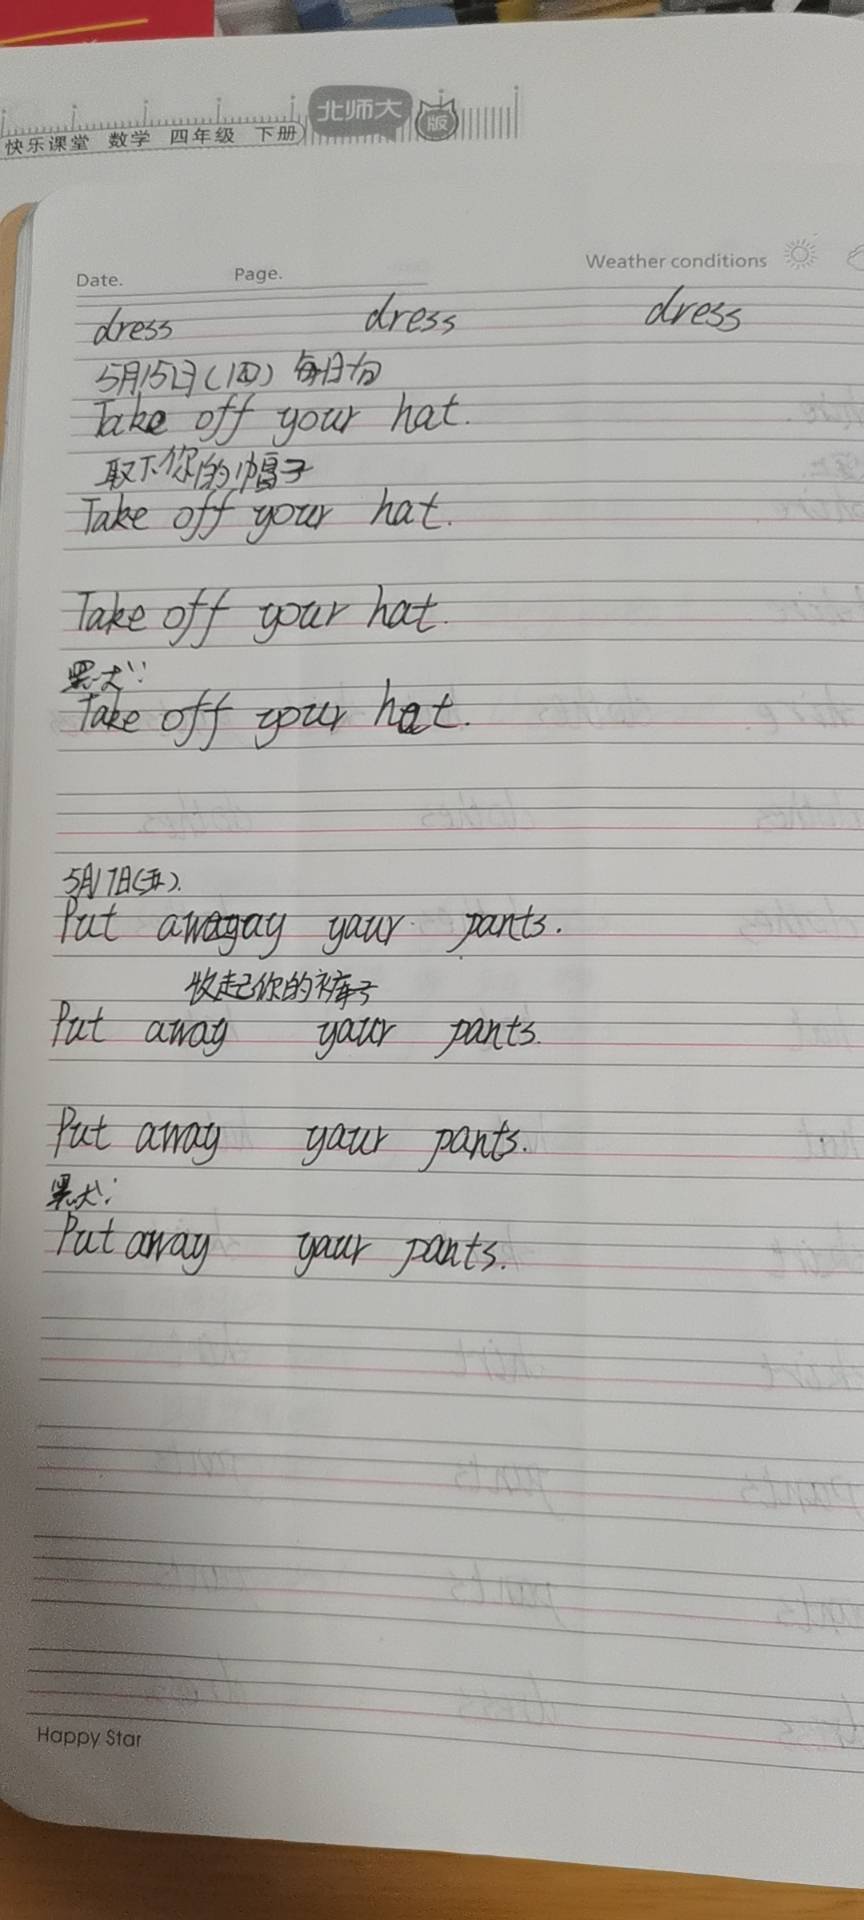 北师大
版
快乐课堂 数学 四年级 下册
Date. Page. Weather conditions
dress dress dress
5月15日(四) 每日句
Take off your hat.
取下你的帽子
Take off your hat.
Take off your hat.
黑犬:
Take off your hat.
5月17日(五).
Put awagay yaur pants.
收起你的裤子
Put away yaur pants.
Put away yaur pants.
黑犬:
Put away yaur pants.
Happy Star